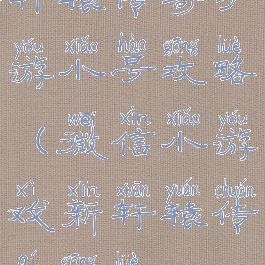 yóu xiǎo hào gōng lüè
游小号攻略
wēi xìn xiǎo yóu
（微信小游
xì xīn xuān yuán chuán
戏新轩辕传
qí gōng lüè